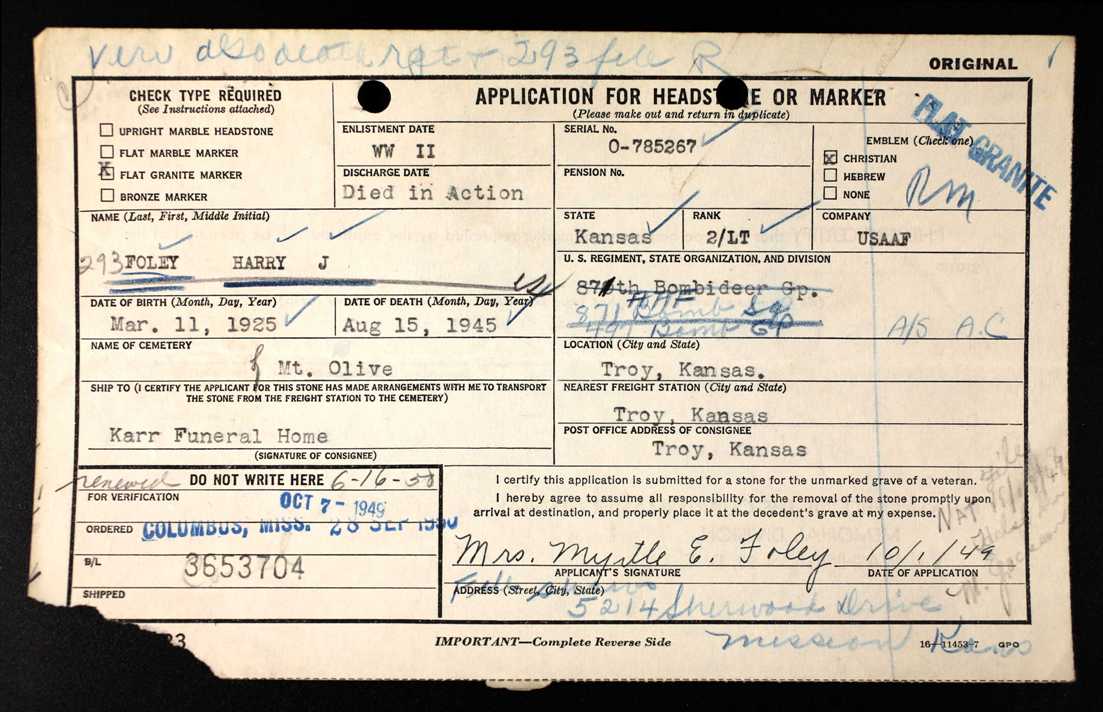 Veri also death rgt + 293 file R
ORIGINAL
CHECK TYPE REQUIRED
(See Instructions attached)
UPRIGHT MARBLE HEADSTONE
FLAT MARBLE MARKER
X FLAT GRANITE MARKER
BRONZE MARKER
APPLICATION FOR HEADSTONE OR MARKER
(Please make out and return in duplicate)
ENLISTMENT DATE
WW II
DISCHARGE DATE
Died in Action
SERIAL No.
O-785267
PENSION No.
EMBLEM (Check one)
X CHRISTIAN
HEBREW
NONE
RM
FLAT GRANITE
NAME (Last, First, Middle Initial)
293 FOLEY HARRY J
STATE
Kansas
RANK
2/LT
COMPANY
USAAF
U. S. REGIMENT, STATE ORGANIZATION, AND DIVISION
871th Bombideer Gp.
AAF
871 Bomb Sq
497 Bomb Gp
A/S A.C
DATE OF BIRTH (Month, Day, Year)
Mar. 11, 1925
DATE OF DEATH (Month, Day, Year)
Aug 15, 1945
NAME OF CEMETERY
Mt. Olive
LOCATION (City and State)
Troy, Kansas.
SHIP TO (I CERTIFY THE APPLICANT FOR THIS STONE HAS MADE ARRANGEMENTS WITH ME TO TRANSPORT
THE STONE FROM THE FREIGHT STATION TO THE CEMETERY)
Karr Funeral Home
(SIGNATURE OF CONSIGNEE)
NEAREST FREIGHT STATION (City and State)
Troy, Kansas
POST OFFICE ADDRESS OF CONSIGNEE
Troy, Kansas
renewed DO NOT WRITE HERE 6-16-50
FOR VERIFICATION
OCT 7 - 1949
ORDERED COLUMBUS, MISS. 28 SEP 1950
B/L
3653704
SHIPPED
I certify this application is submitted for a stone for the unmarked grave of a veteran.
I hereby agree to assume all responsibility for the removal of the stone promptly upon
arrival at destination, and properly place it at the decedent's grave at my expense.
Mrs. Myrtle E. Foley 10/1/49
APPLICANT'S SIGNATURE
DATE OF APPLICATION
ADDRESS (Street, City, State)
5214 Sherwood Drive
Mission Kans
IMPORTANT—Complete Reverse Side
16—11453-7 GPO